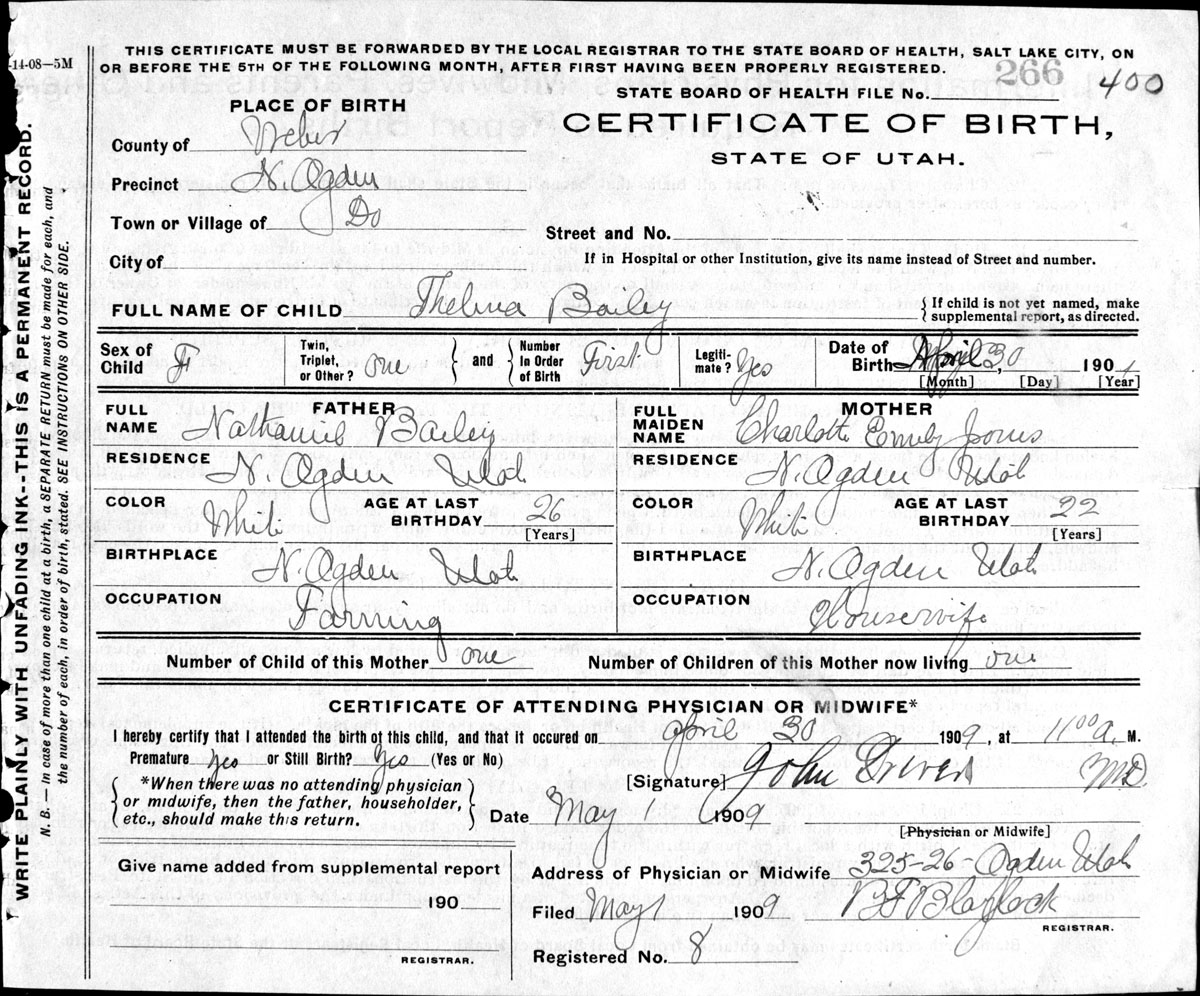 -14-08—5M
THIS CERTIFICATE MUST BE FORWARDED BY THE LOCAL REGISTRAR TO THE STATE BOARD OF HEALTH, SALT LAKE CITY, ON
OR BEFORE THE 5TH OF THE FOLLOWING MONTH, AFTER FIRST HAVING BEEN PROPERLY REGISTERED.
266
400
STATE BOARD OF HEALTH FILE No.
PLACE OF BIRTH
CERTIFICATE OF BIRTH,
STATE OF UTAH.
County of Weber
Precinct N. Ogden
Town or Village of Do
Street and No.
City of
If in Hospital or other Institution, give its name instead of Street and number.
FULL NAME OF CHILD Thelma Bailey
{ If child is not yet named, make
supplemental report, as directed.
Sex of Child F
Twin, Triplet, or Other? one
and
Number In Order of Birth First
Legiti-mate? Yes
Date of Birth April 30 190
[Month] [Day] [Year]
FATHER
FULL NAME Nathaniel Bailey
RESIDENCE N. Ogden Utah
COLOR White
AGE AT LAST BIRTHDAY 26
[Years]
BIRTHPLACE N. Ogden Utah
OCCUPATION Farming
MOTHER
FULL MAIDEN NAME Charlotte Emily Jones
RESIDENCE N. Ogden Utah
COLOR White
AGE AT LAST BIRTHDAY 22
[Years]
BIRTHPLACE N. Ogden Utah
OCCUPATION Housewife
Number of Child of this Mother one
Number of Children of this Mother now living one
CERTIFICATE OF ATTENDING PHYSICIAN OR MIDWIFE*
I hereby certify that I attended the birth of this child, and that it occured on April 30 1909, at 11 00 a. M.
Premature Yes or Still Birth? Yes (Yes or No)
[Signature] John Driver M.D.
{ *When there was no attending physician
or midwife, then the father, householder,
etc., should make this return. }
Date May 1 1909
[Physician or Midwife]
Give name added from supplemental report
190
REGISTRAR.
Address of Physician or Midwife 325-26- Ogden Utah
Filed May 1 1909 BF Blaylock
REGISTRAR.
Registered No. 8
WRITE PLAINLY WITH UNFADING INK--THIS IS A PERMANENT RECORD.
N. B.—In case of more than one child at a birth, a SEPARATE RETURN must be made for each, and
the number of each, in order of birth, stated. SEE INSTRUCTIONS ON OTHER SIDE.